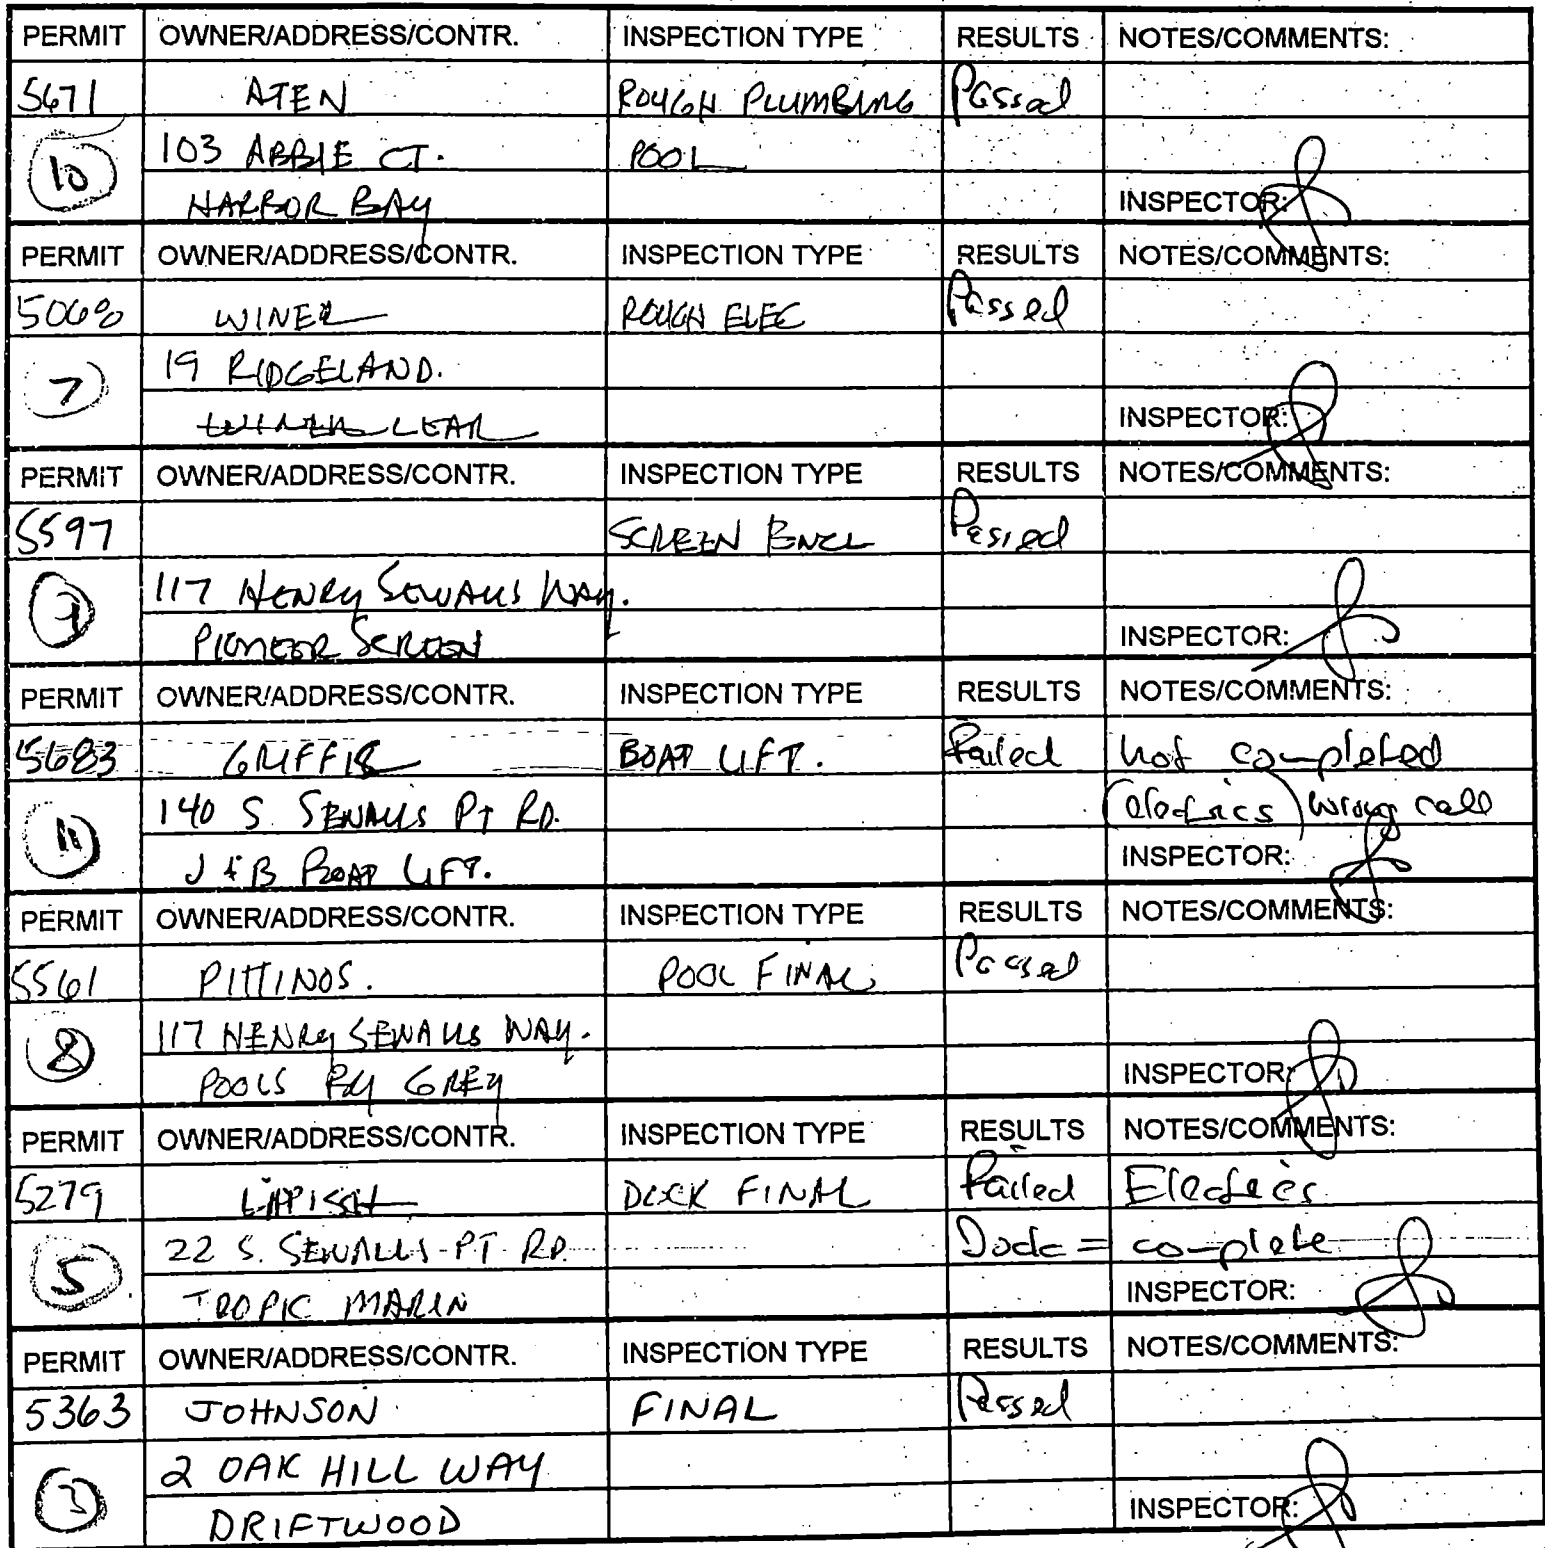 PERMIT OWNER/ADDRESS/CONTR. INSPECTION TYPE RESULTS NOTES/COMMENTS:
5671 ATEN ROUGH PLUMBING Passed
10 103 ABBIE CT. POOL
HARBOR BAY INSPECTOR:
PERMIT OWNER/ADDRESS/CONTR. INSPECTION TYPE RESULTS NOTES/COMMENTS:
5068 WINER ROUGH ELEC Passed
7 19 RIDGELAND.
WINER LEAR INSPECTOR:
PERMIT OWNER/ADDRESS/CONTR. INSPECTION TYPE RESULTS NOTES/COMMENTS:
5597 SCREEN ENCL Passed
117 HENRY SEWALLS WAY.
PIONEER SCREEN INSPECTOR:
PERMIT OWNER/ADDRESS/CONTR. INSPECTION TYPE RESULTS NOTES/COMMENTS:
5683 BOAT LIFT. Failed not completed
11 140 S. SEWALLS PT RD. (electrics) wrong call
J & B BOAT LIFT. INSPECTOR:
PERMIT OWNER/ADDRESS/CONTR. INSPECTION TYPE RESULTS NOTES/COMMENTS:
5561 PITTINOS. POOL FINAL Passed
8 117 HENRY SEWALLS WAY.
POOLS BY GREY INSPECTOR:
PERMIT OWNER/ADDRESS/CONTR. INSPECTION TYPE RESULTS NOTES/COMMENTS:
5279 LIPPISCH DOCK FINAL Failed Electrics
5 22 S. SEWALLS PT RD. Dock = complete
TROPIC MARIN INSPECTOR:
PERMIT OWNER/ADDRESS/CONTR. INSPECTION TYPE RESULTS NOTES/COMMENTS:
5363 JOHNSON FINAL Passed
3 2 OAK HILL WAY
DRIFTWOOD INSPECTOR: